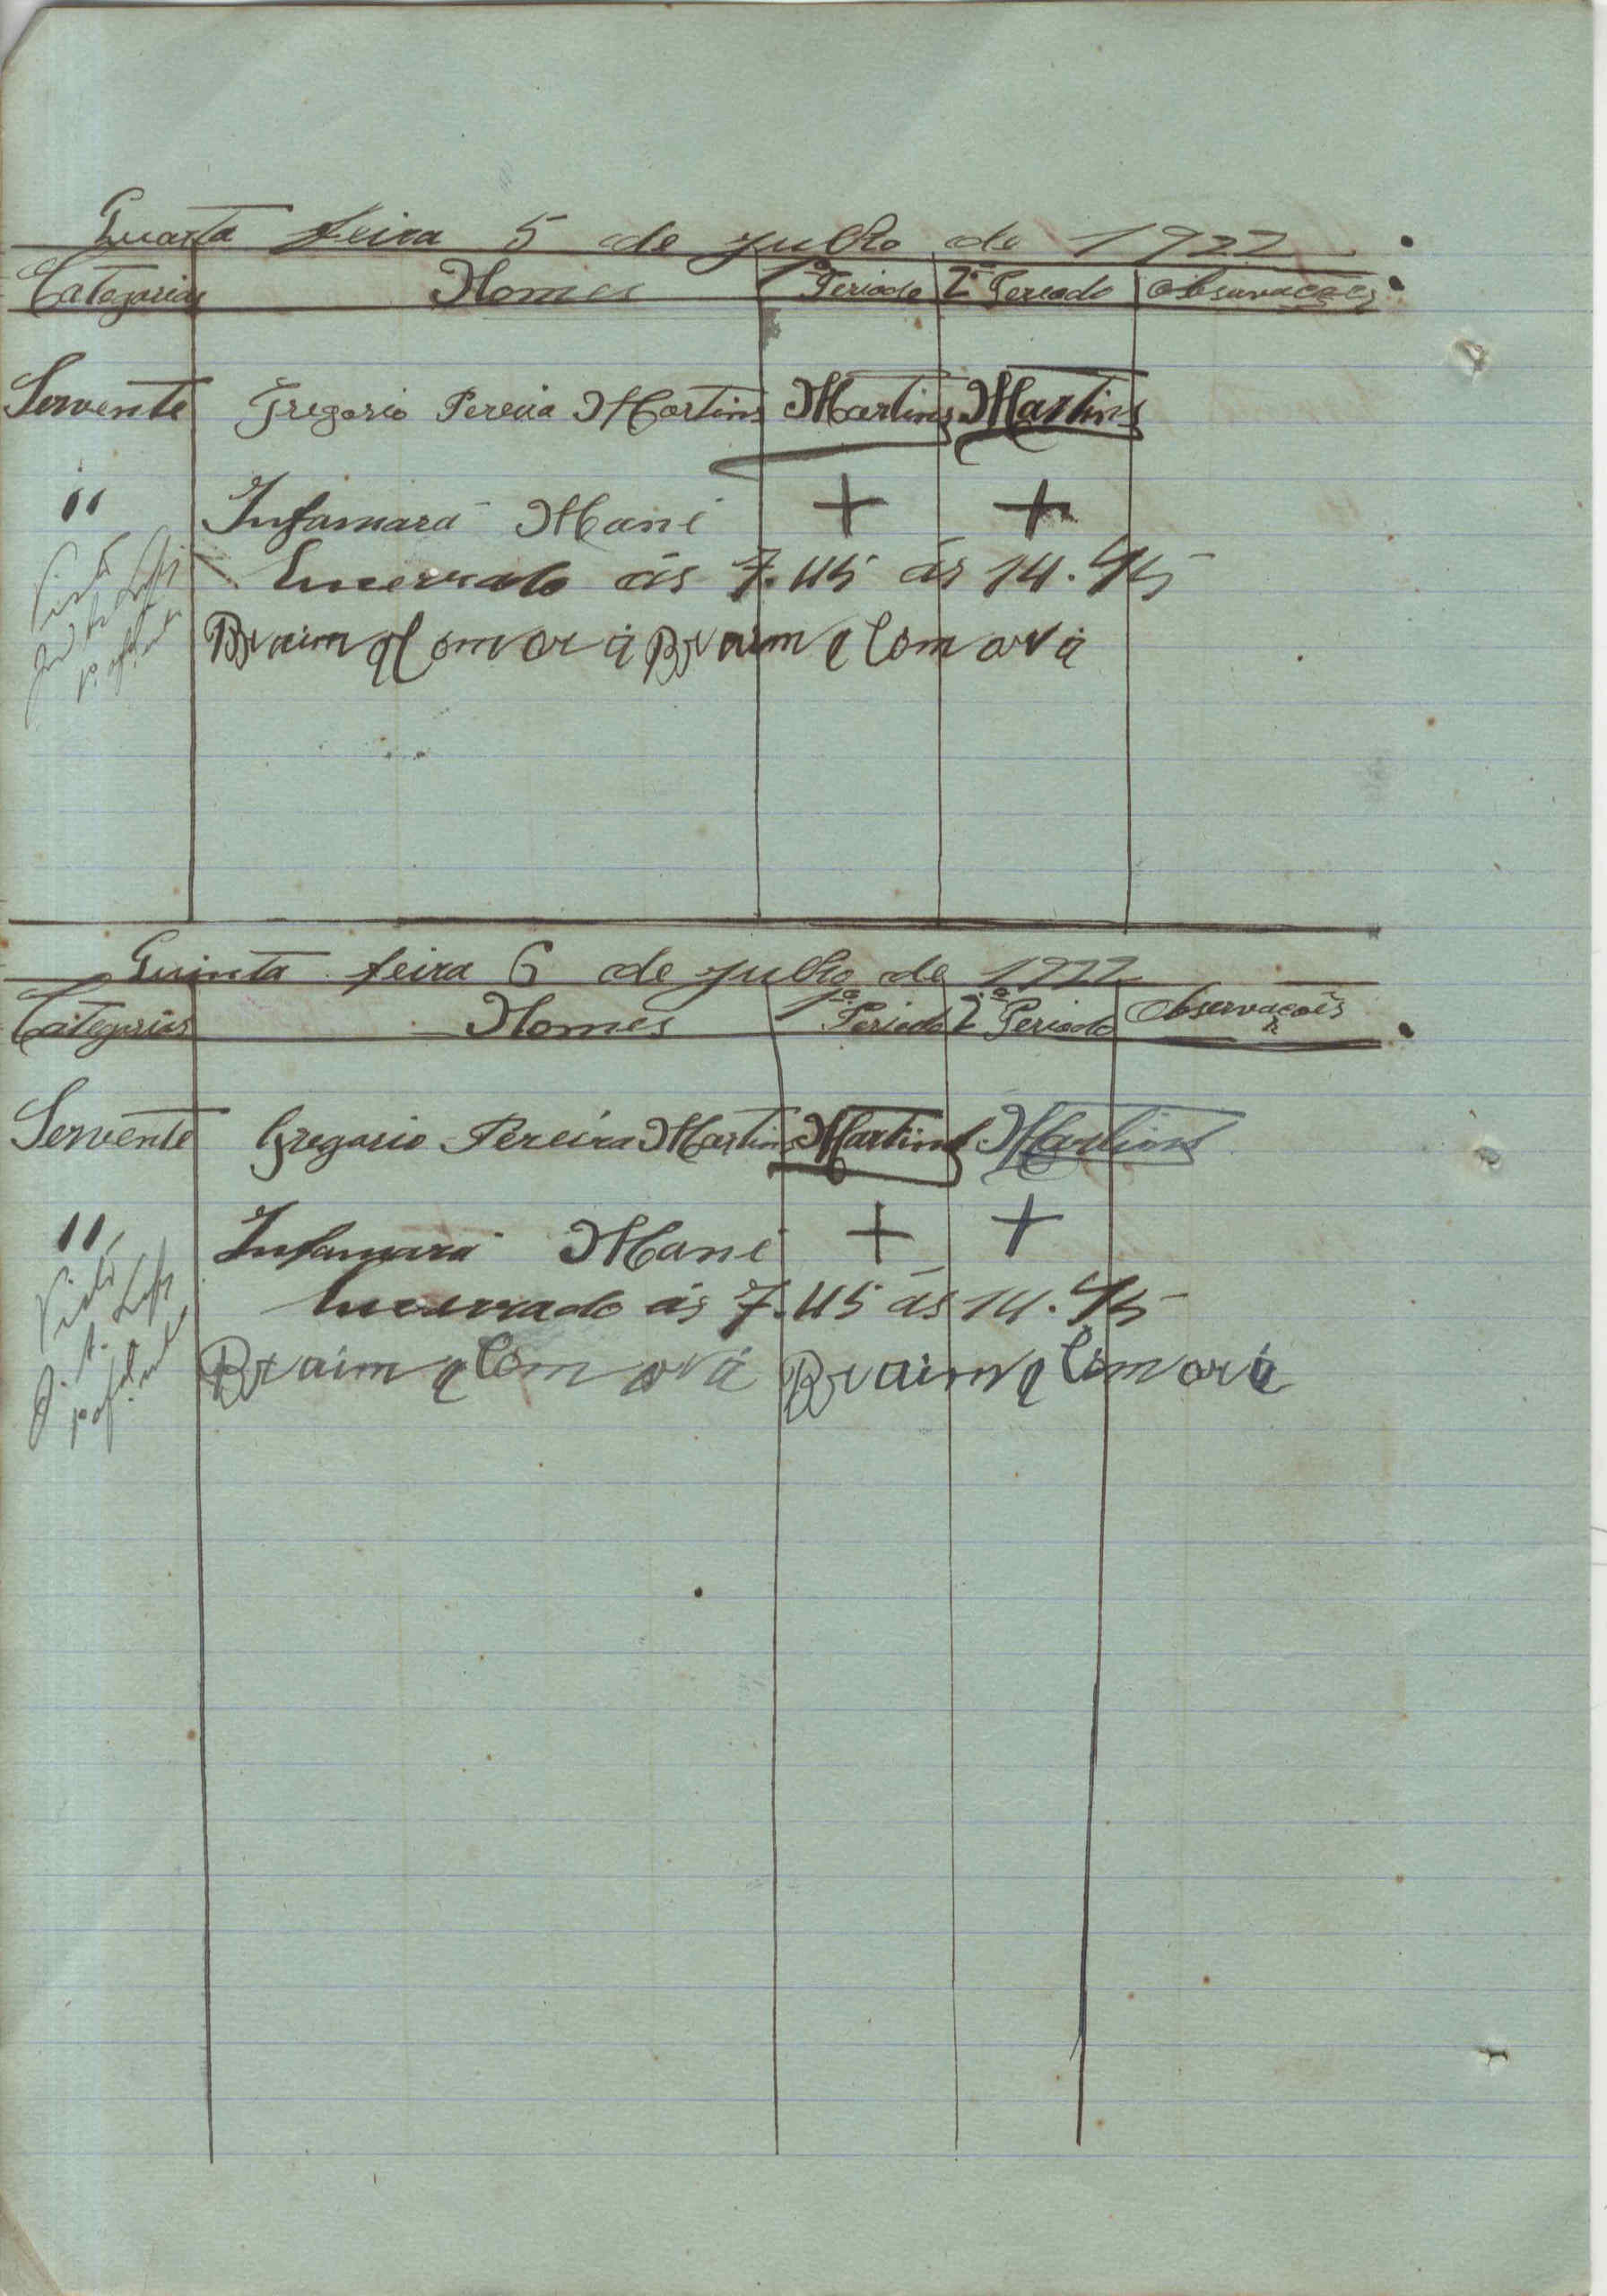 Quarta feira 5 de Julho de 1922
Categorias Nomes 1º Periodo 2º Periodo Observações
Servente Gregorio Pereira Martins Martins Martins
" Infamará Mané + +
Visto
Encerrado ás 7.45 ás 14.45
Braima Comará Braima Comará
Quinta feira 6 de Julho de 1922
Categorias Nomes 1º Periodo 2º Periodo Observações
Servente Gregorio Pereira Martins Martins Martins
" Infamará Mané + +
Visto
Encerrado ás 7.45 ás 14.45
Braima Comará Braima Comará